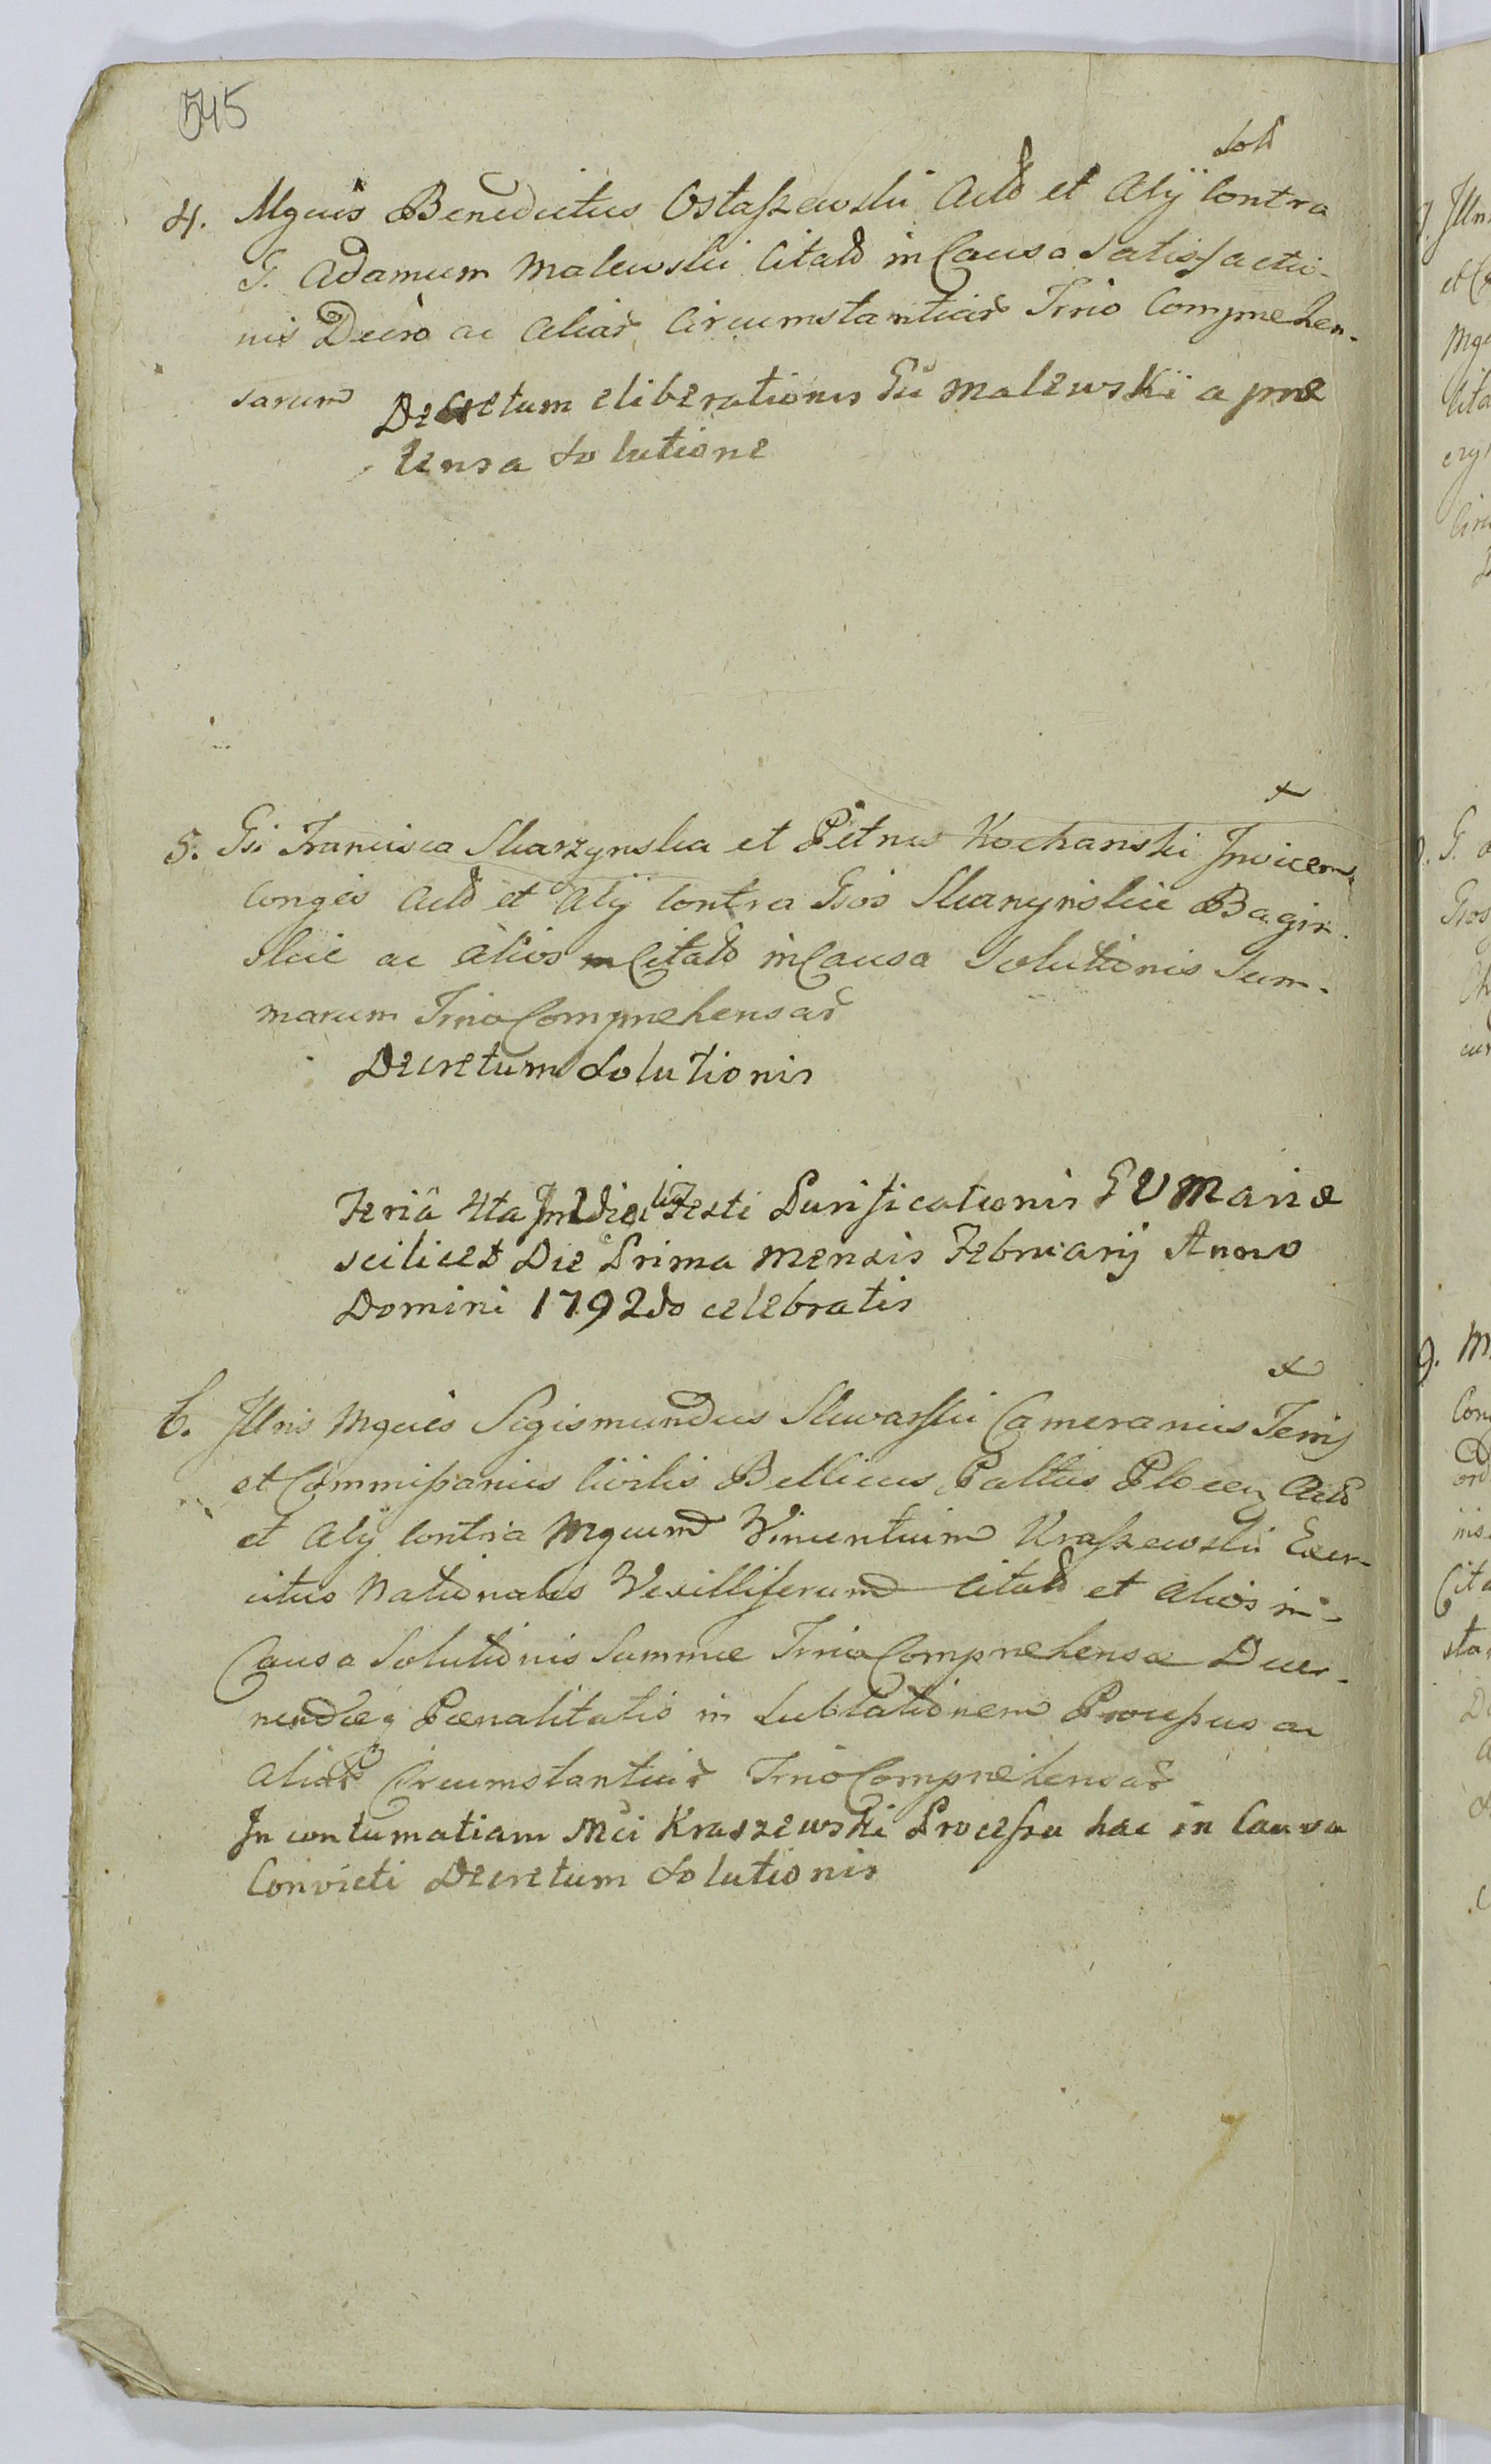 545
Sol
4. Mgcus Benedictus Ostaszewski Actd et Alij Contra
G. Adamum Malewski Citatd in Causa Satisfactio-
nis Decro ac Aliar̃ Circumstantiar̃ Trno Comprehen-
sarum
Decretum eliberationis Gsi Malewski a prae
tensa Solutione
x
5. Gsi Francisca Skarzynska et Petrus Kochanski Invicem
Conges Actd et Alij Contra Gsos Skarzynskie Bagin-
skie ac Alios Citatd in Causa Solutionis Sum-
marum Trno Comprehensar̃
Decretum Solutionis
Feria 4ta Pridie Festi Purificationis B V Mariae
scilicet Die Prima Mensis Februarij Anno
Domini 1792do celebratis
x
6. Illris Mgcus Sigismundus Skwarski Camerarius Terrs
et Commissarius Civilis Bellicus Pallus Plocen Actd
et Alij Contra Mgcum Vincentium Kraszewski Exer-
citus Nationalis Vexilliferum Citatd et Alios in
Causa Solutionis Summae Trno Comprehensae Decer-
nendaeq Paenalitatis in Sublationem Processus ac
Aliar̃ Circumstantiar̃ Trno Comprehensar̃
In contumatiam Mci Kraszewski Processu hac in Causa
Convicti Decretum Solutionis